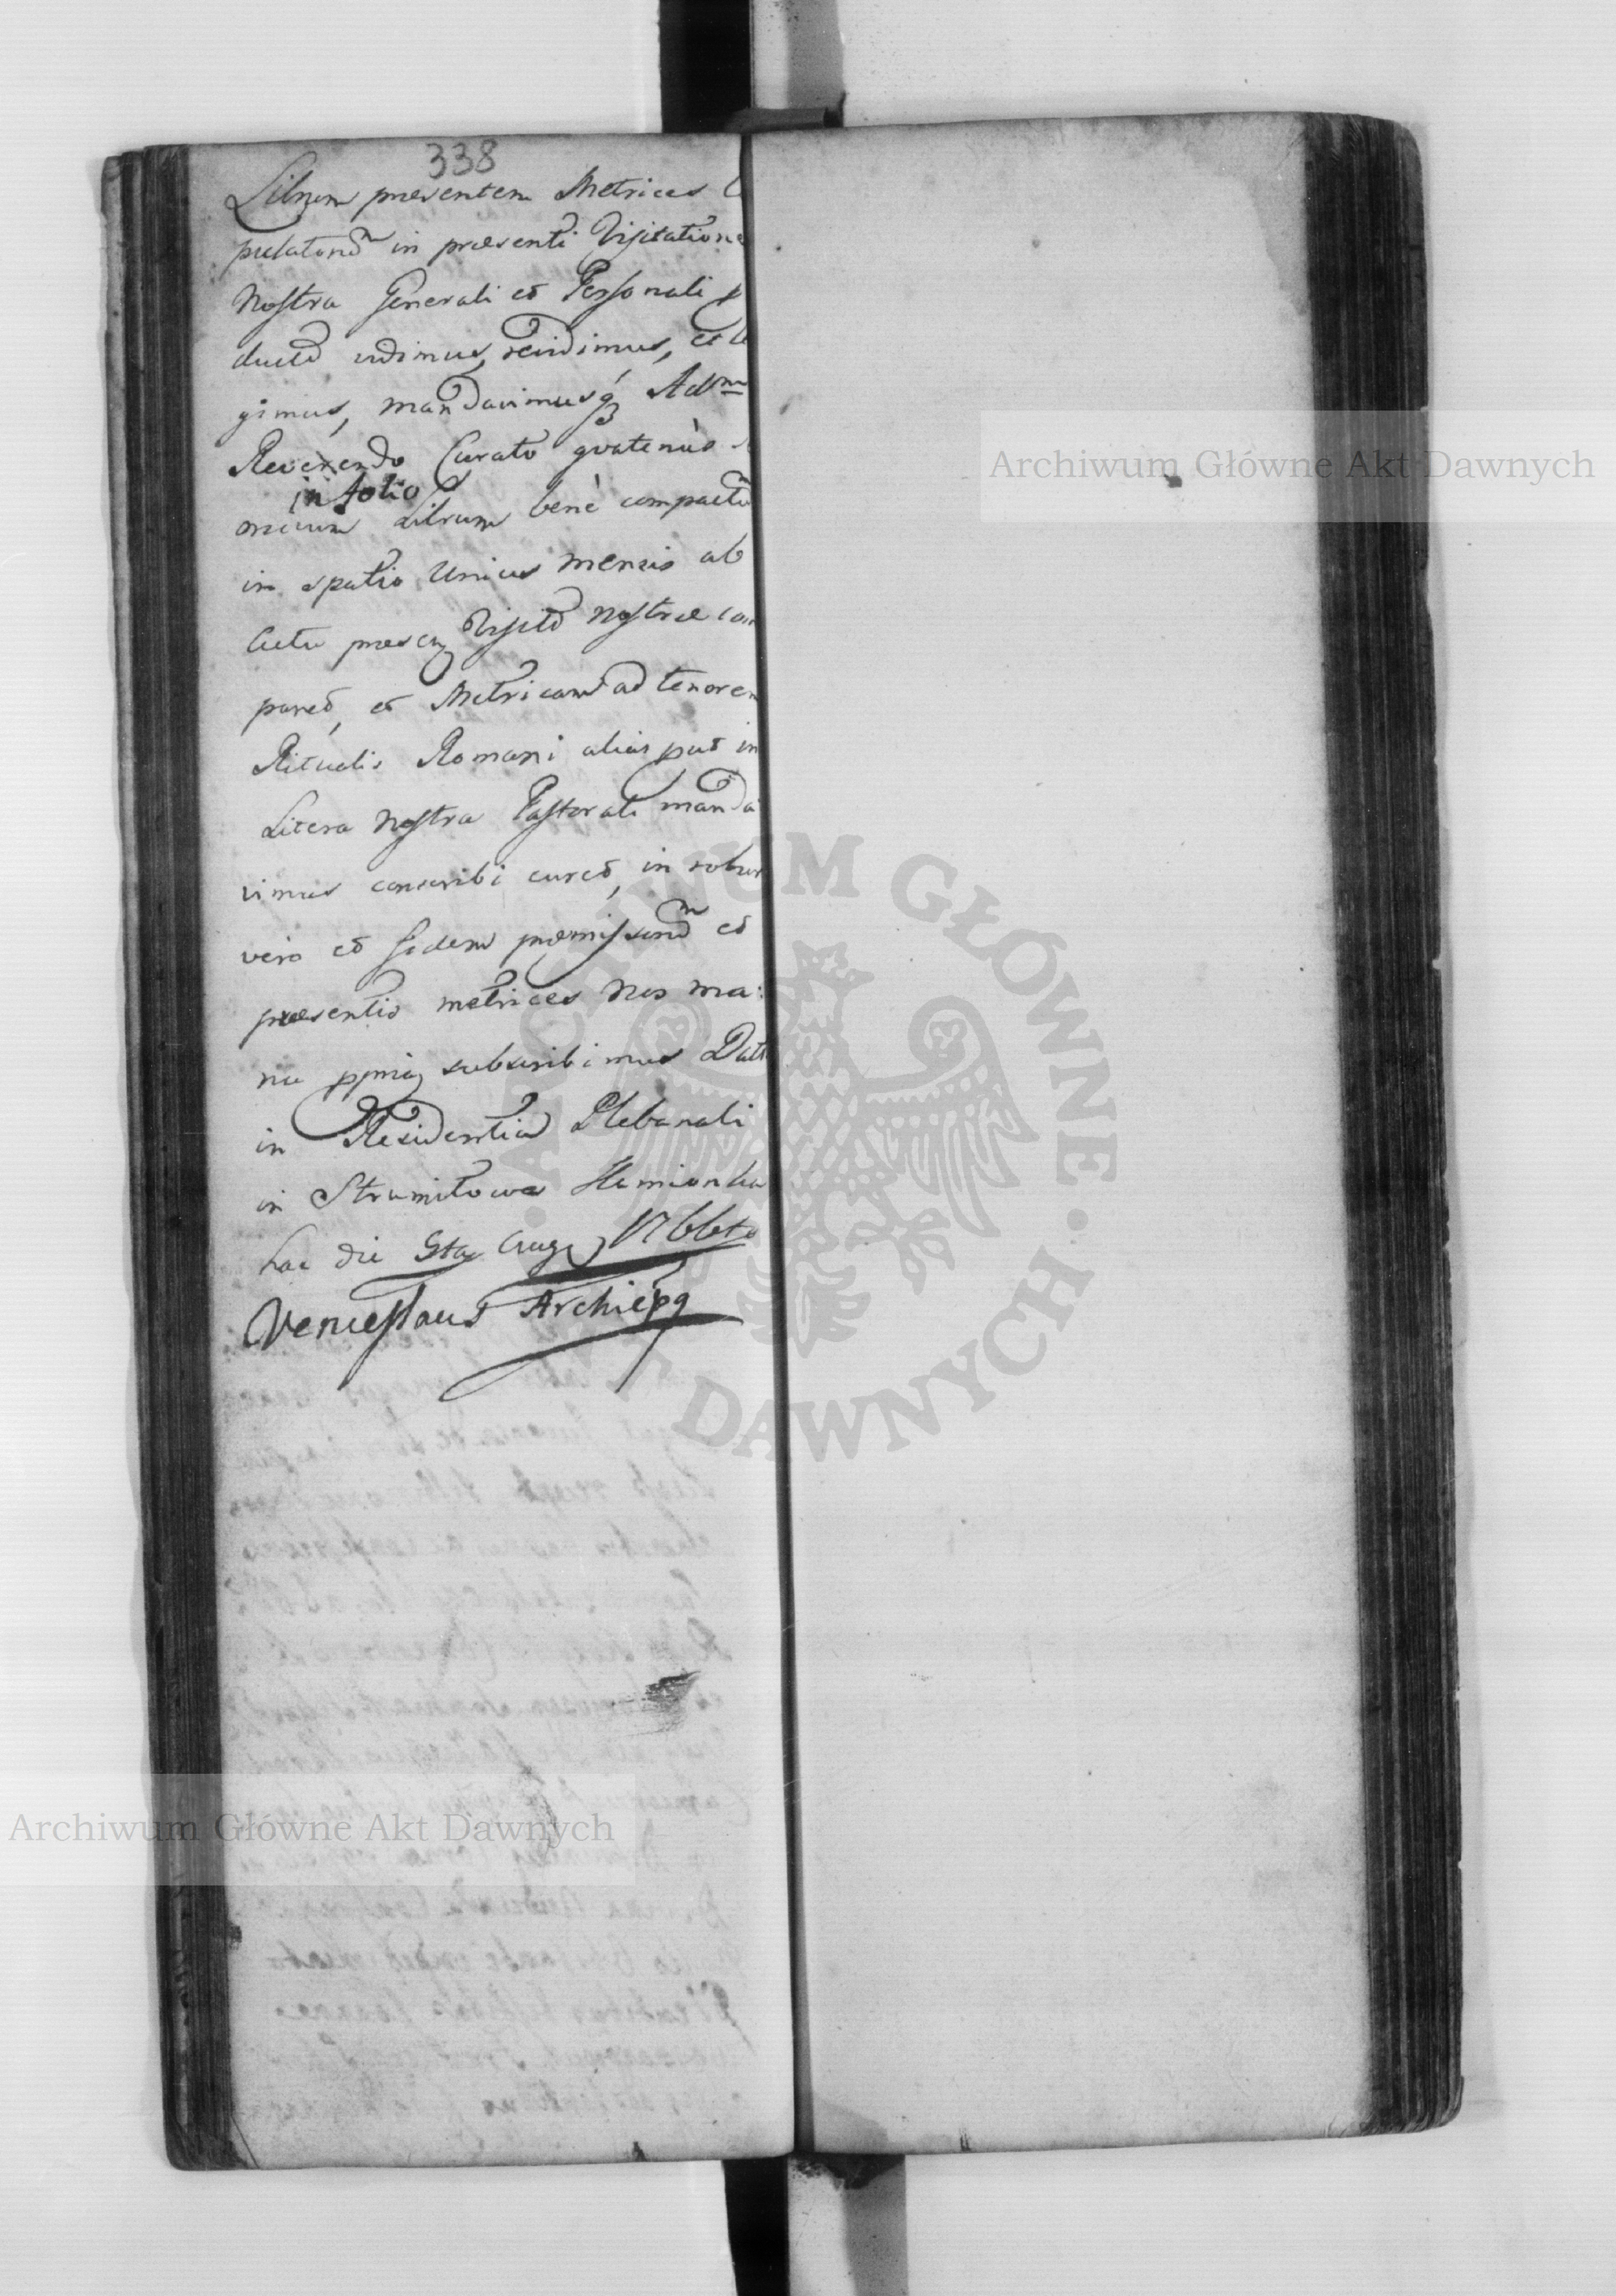 338
Librum præsentem Metrices
pulatorum in præsenti Visitatione
Nostra Generali et Personali
ductū vidimus, revidimus, et
gimus, mandavimusq Adm
Reverendo Curato qvatenùs
in folio
Librum benè compactū
in spatio Unius Mensis ab
actu præsen Visitō Nostræ com
paret, et Metricam ad tenorem
Ritualis Romani alias put in
Litera Nostra Pastorali manda
vimus conscribi curet, in robur
vero et fidem præmissorum et
præsentis metrices Nos ma:
nu ppria subscribimus Datt
in Residentia Plebanali
in Strumiłowa Kamionka
hac die Aug 1766to
Venceslaus Archiepq
Archiwum Główne Akt Dawnych
Archiwum Główne Akt Dawnych
ARCHIWUM GŁÓWNE AKT DAWNYCH